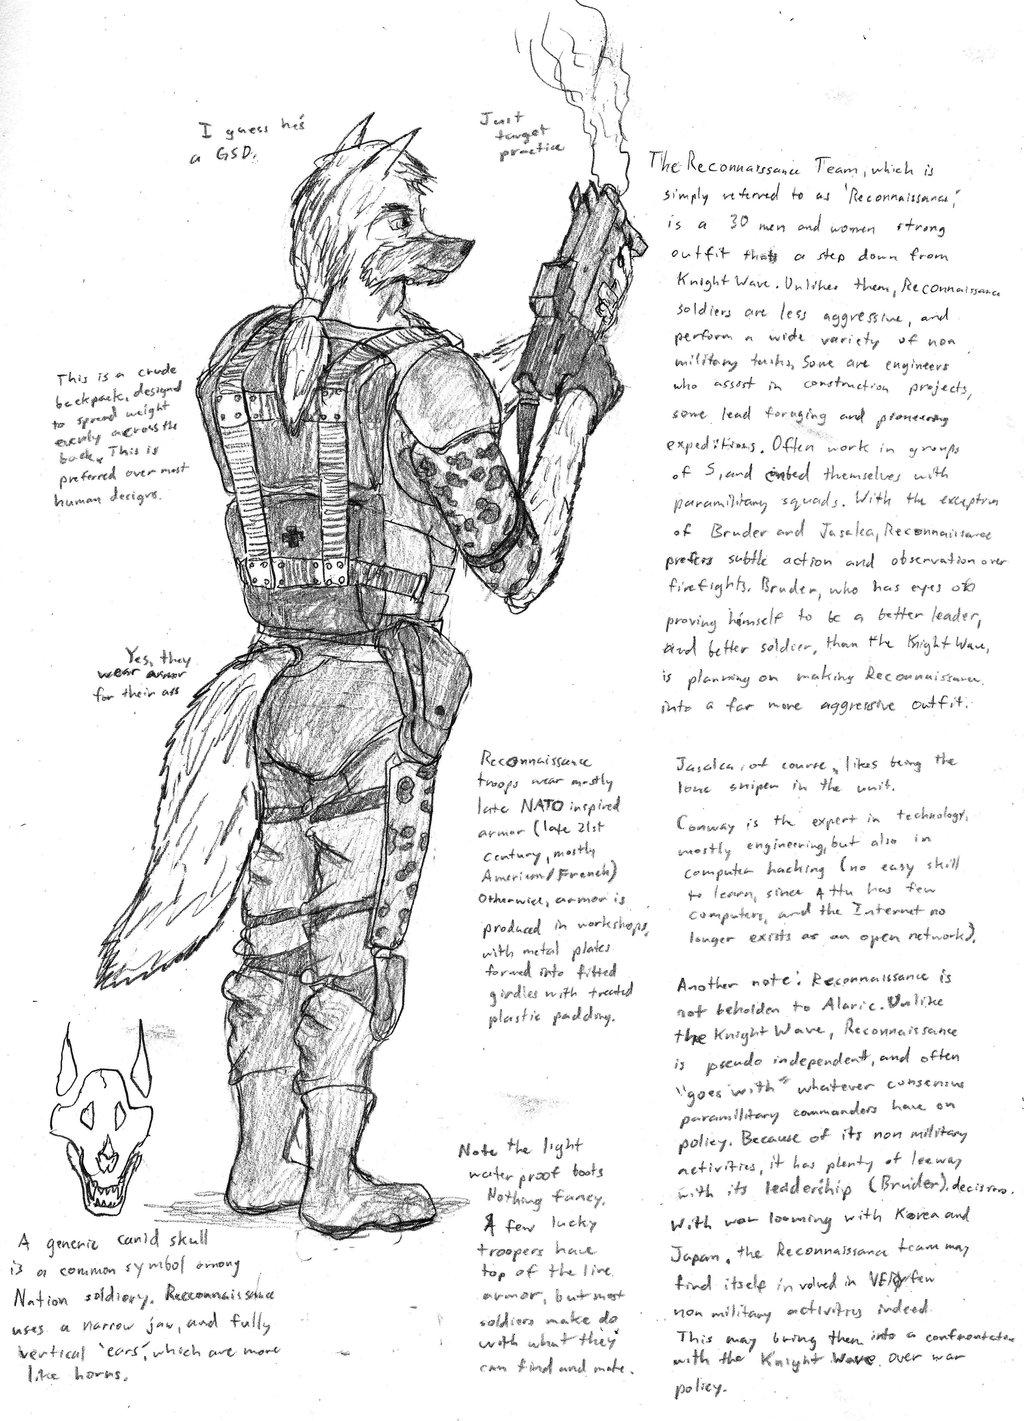 I guess he's
a GSD.
Just
target
practice
The Reconnaissance Team, which is
simply referred to as 'Reconnaissance',
is a 30 men and women strong
outfit thats a step down from
Knight Wave. Unlikes them, Reconnaissance
soldiers are less aggressive, and
perform a wide variety of non
military tasks. Some are engineers
who assist in construction projects,
some lead foraging and pioneering
expeditions. Often work in groups
of 5, and embed themselves with
paramilitary squads. With the exception
of Bruder and Jasalea, Reconnaissance
prefers subtle action and observation over
firefights. Bruder, who has eyes of
proving himself to be a better leader,
and better soldier, than the Knight Wave,
is planning on making Reconnaissance
into a far more aggressive outfit.
This is a crude
backpack, designed
to spread weight
evenly across the
back. This is
preferred over most
human designs.
Yes, they
wear armor
for their ass
Reconnaissance
troops wear mostly
late NATO inspired
armor (late 21st
century, mostly
American/French)
Otherwise, armor is
produced in workshops,
with metal plates
formed into fitted
girdles with treated
plastic padding.
Jasalea, of course, likes being the
lone sniper in the unit.
Conway is the expert in technology,
mostly engineering, but also in
computer hacking (no easy skill
to learn, since Attu has few
computers, and the Internet no
longer exists as an open network).
Another note: Reconnaissance is
not beholden to Alaric. Unlike
the Knight Wave, Reconnaissance
is pseudo independent, and often
"goes with" whatever consensus
paramilitary commanders have on
policy. Because of its non military
activities, it has plenty of leeway
with its leadership (Bruder) decisions.
With war looming with Korea and
Japan, the Reconnaissance team may
find itself involved in VERY few
non military activities indeed.
This may bring them into a confrontation
with the Knight Wave over war
policy.
Note the light
water proof boots
Nothing fancy.
A few lucky
troopers have
top of the line
armor, but most
soldiers make do
with what they
can find and make.
A generic canid skull
is a common symbol among
Nation soldiery. Reconnaissance
uses a narrow jaw, and fully
vertical 'ears', which are more
like horns.